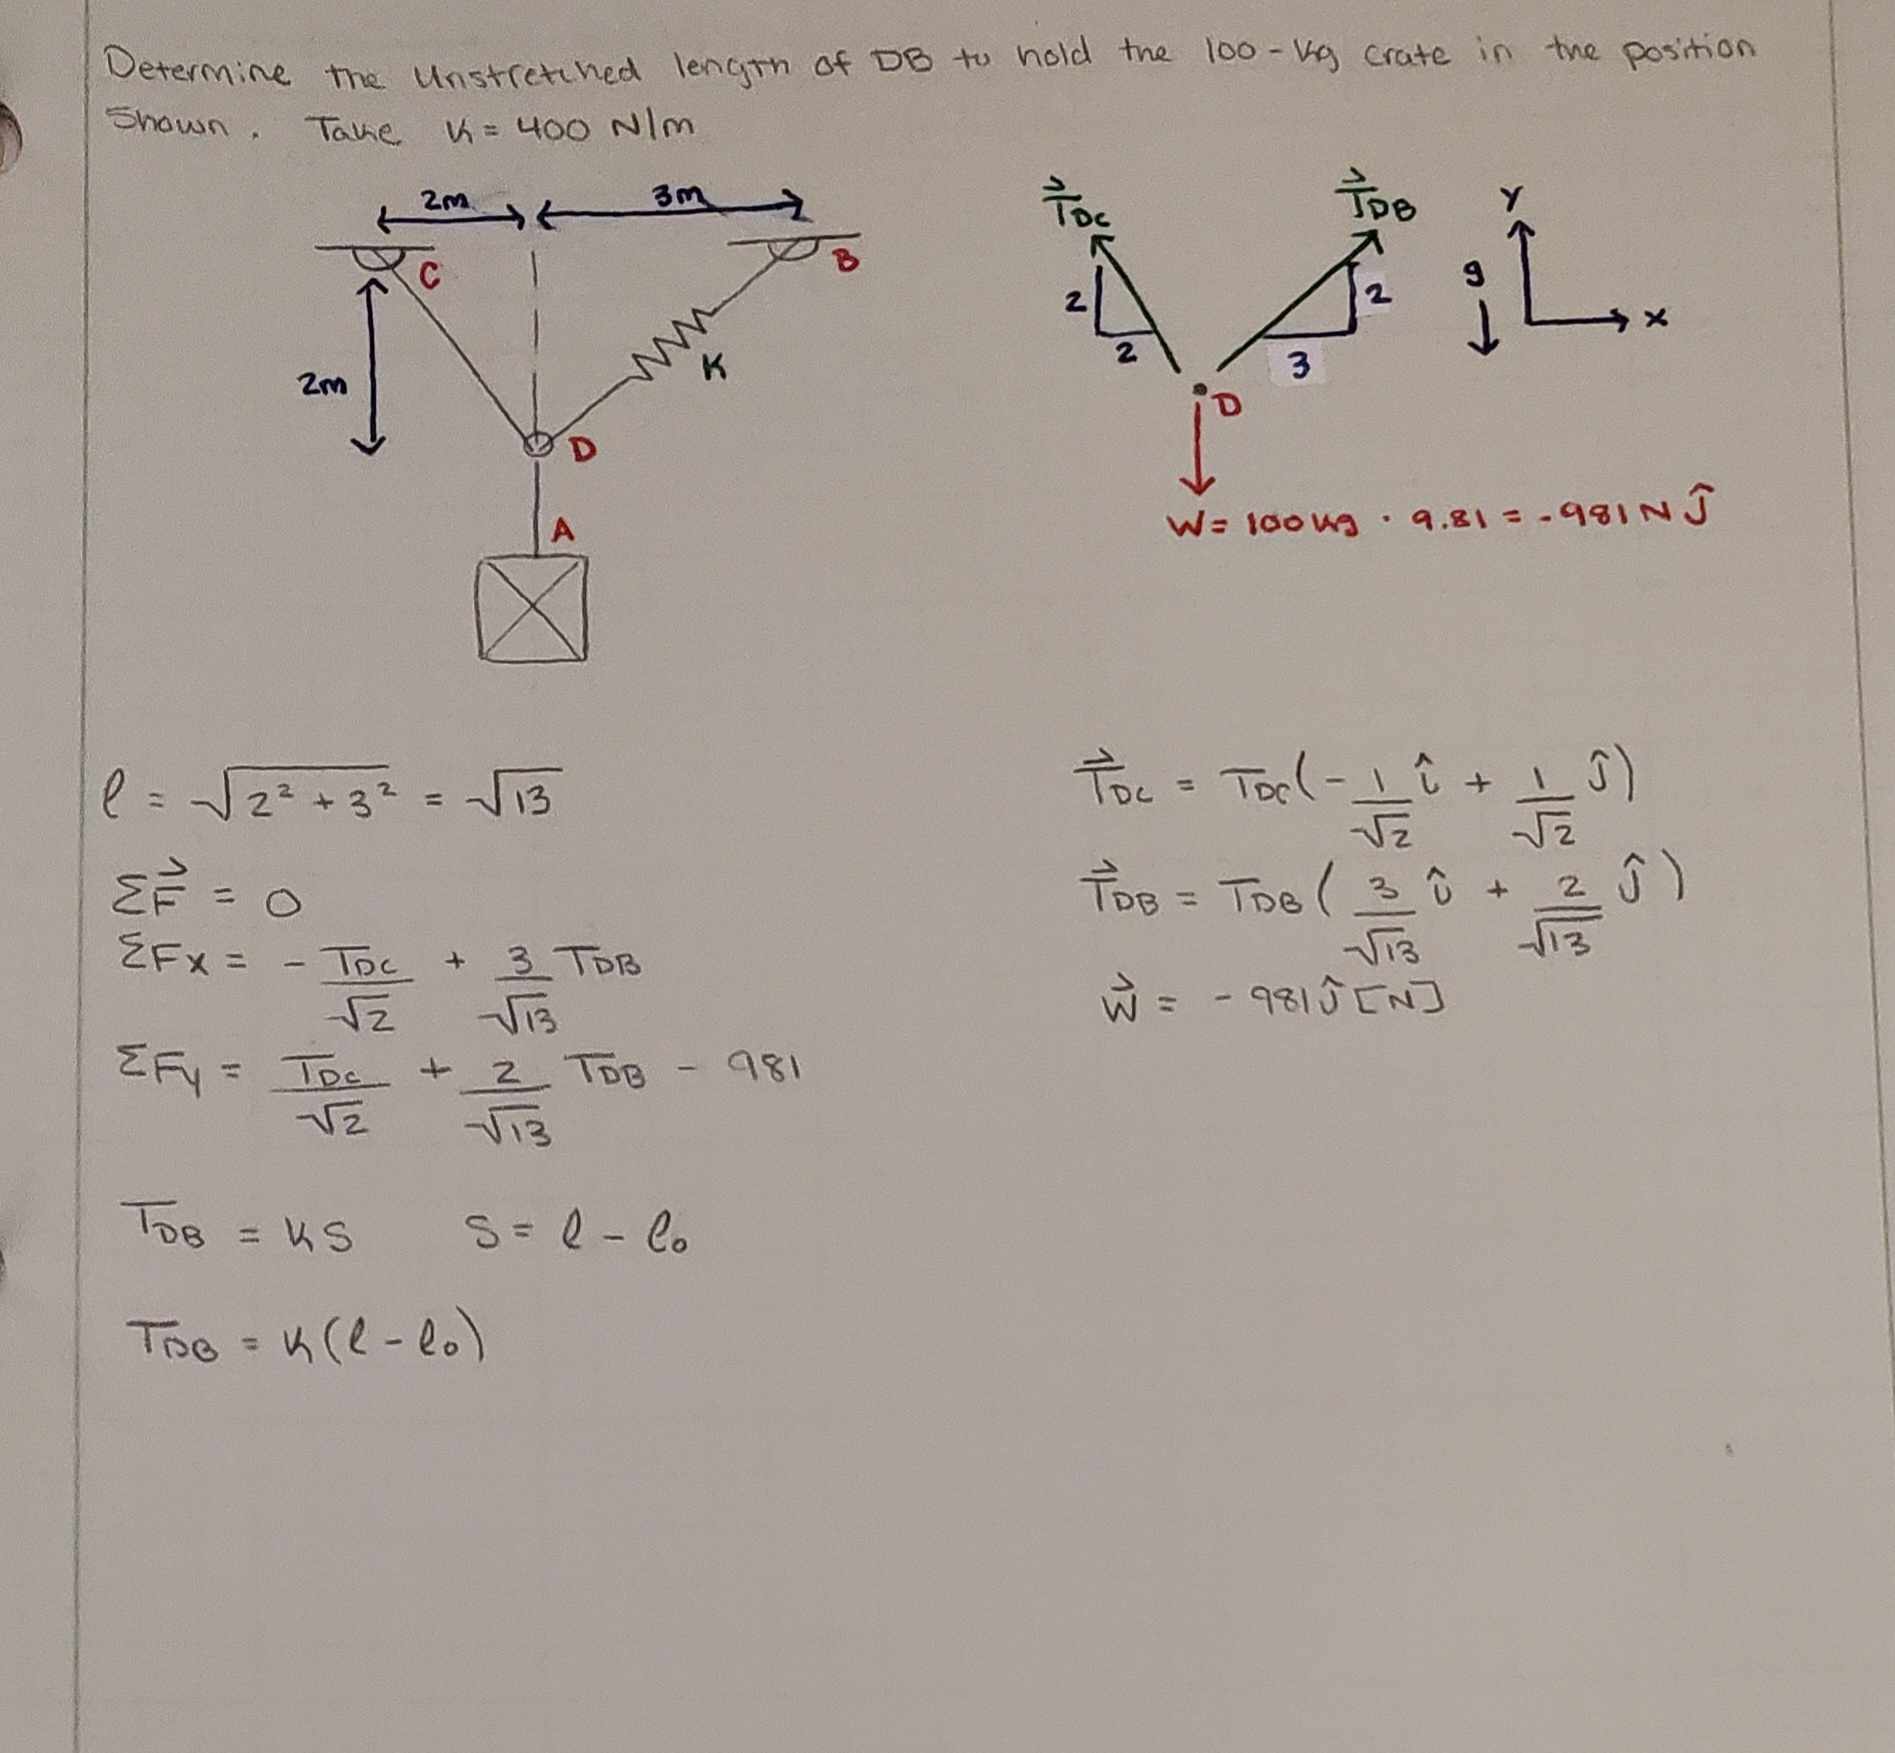 Determine the Unstretched length of DB to hold the 100-kg crate in the position
Shown. Take K = 400 N/m
2m 3m
C B
2m
K
D
A
T⃗DC T⃗DB Y
2 2 g
2 3 x
D
W = 100kg · 9.81 = -981 N ĵ
l = √2² + 3² = √13
ΣF⃗ = 0
ΣFx = - TDC/√2 + 3/√13 TDB
ΣFy = TDC/√2 + 2/√13 TDB - 981
TDB = KS S = l - l₀
TDB = K(l - l₀)
T⃗DC = TDC(- 1/√2 î + 1/√2 ĵ)
T⃗DB = TDB( 3/√13 î + 2/√13 ĵ)
W⃗ = -981ĵ [N]